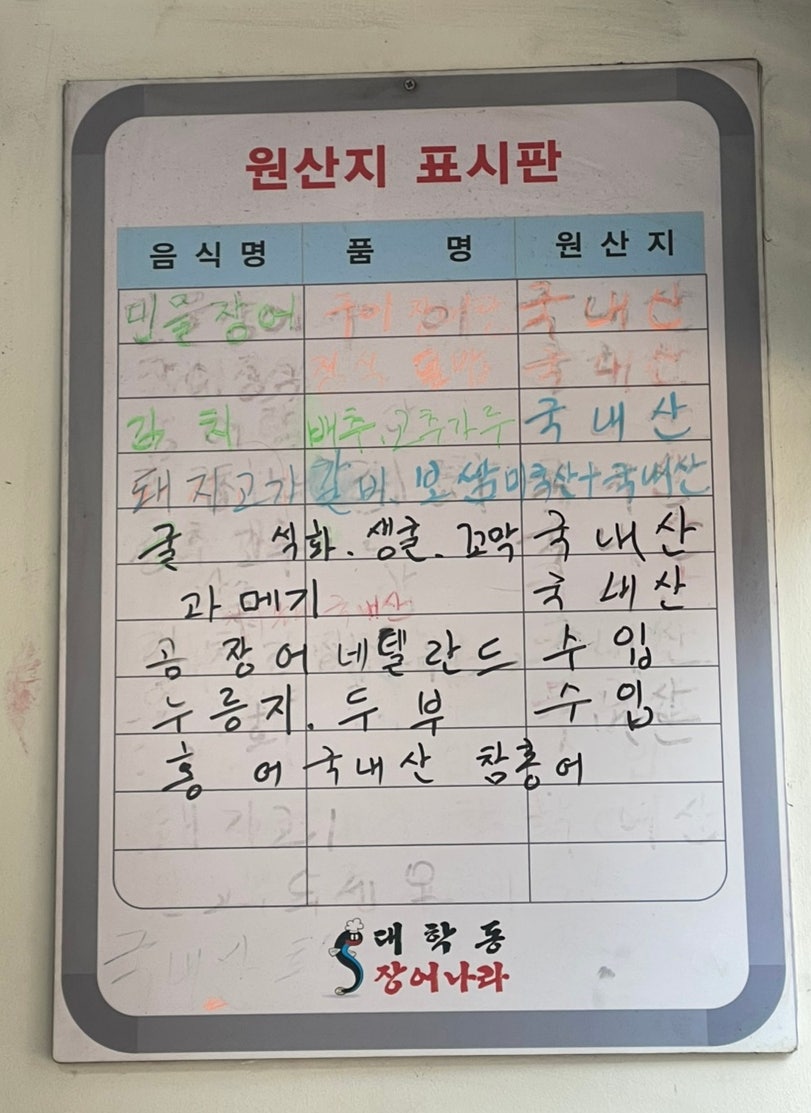 원산지 표시판
음식명 품명 원산지
민물장어 구이 국내산
국내산
김치 배추.고추가루 국내산
돼지고기 갈비.보쌈 미국산+국내산
굴 석화.생굴.꼬막 국내산
과메기 국내산
곰장어 네텔란드 수입
누릉지.두부 수입
홍어 국내산 참홍어
대학동
장어나라